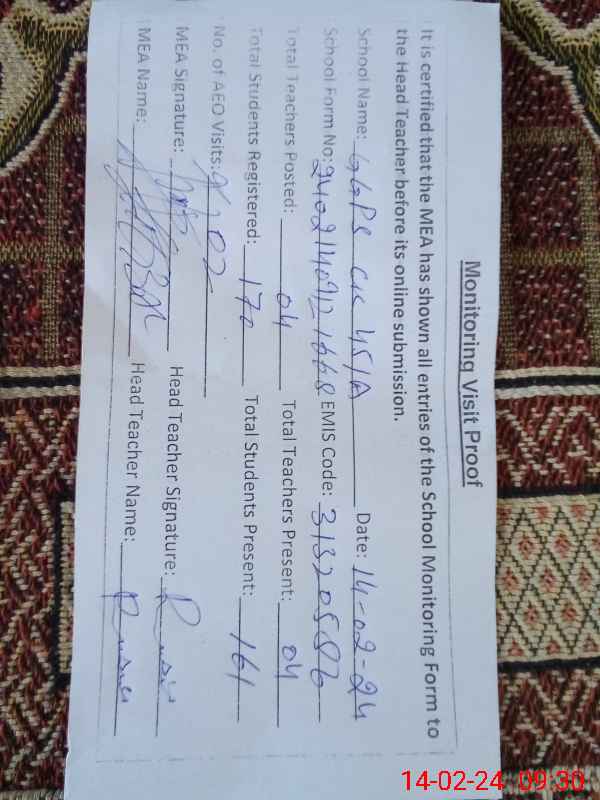 Monitoring Visit Proof
It is certified that the MEA has shown all entries of the School Monitoring Form to
the Head Teacher before its online submission.
School Name: GGPS CK 45/A Date: 14-02-24
School Form No: EMIS Code: 31320586
Total Teachers Posted: 04 Total Teachers Present: 04
Total Students Registered: 170 Total Students Present: 161
No. of AEO Visits: 02
MEA Signature: Head Teacher Signature:
MEA Name: Head Teacher Name:
14-02-24 09:30